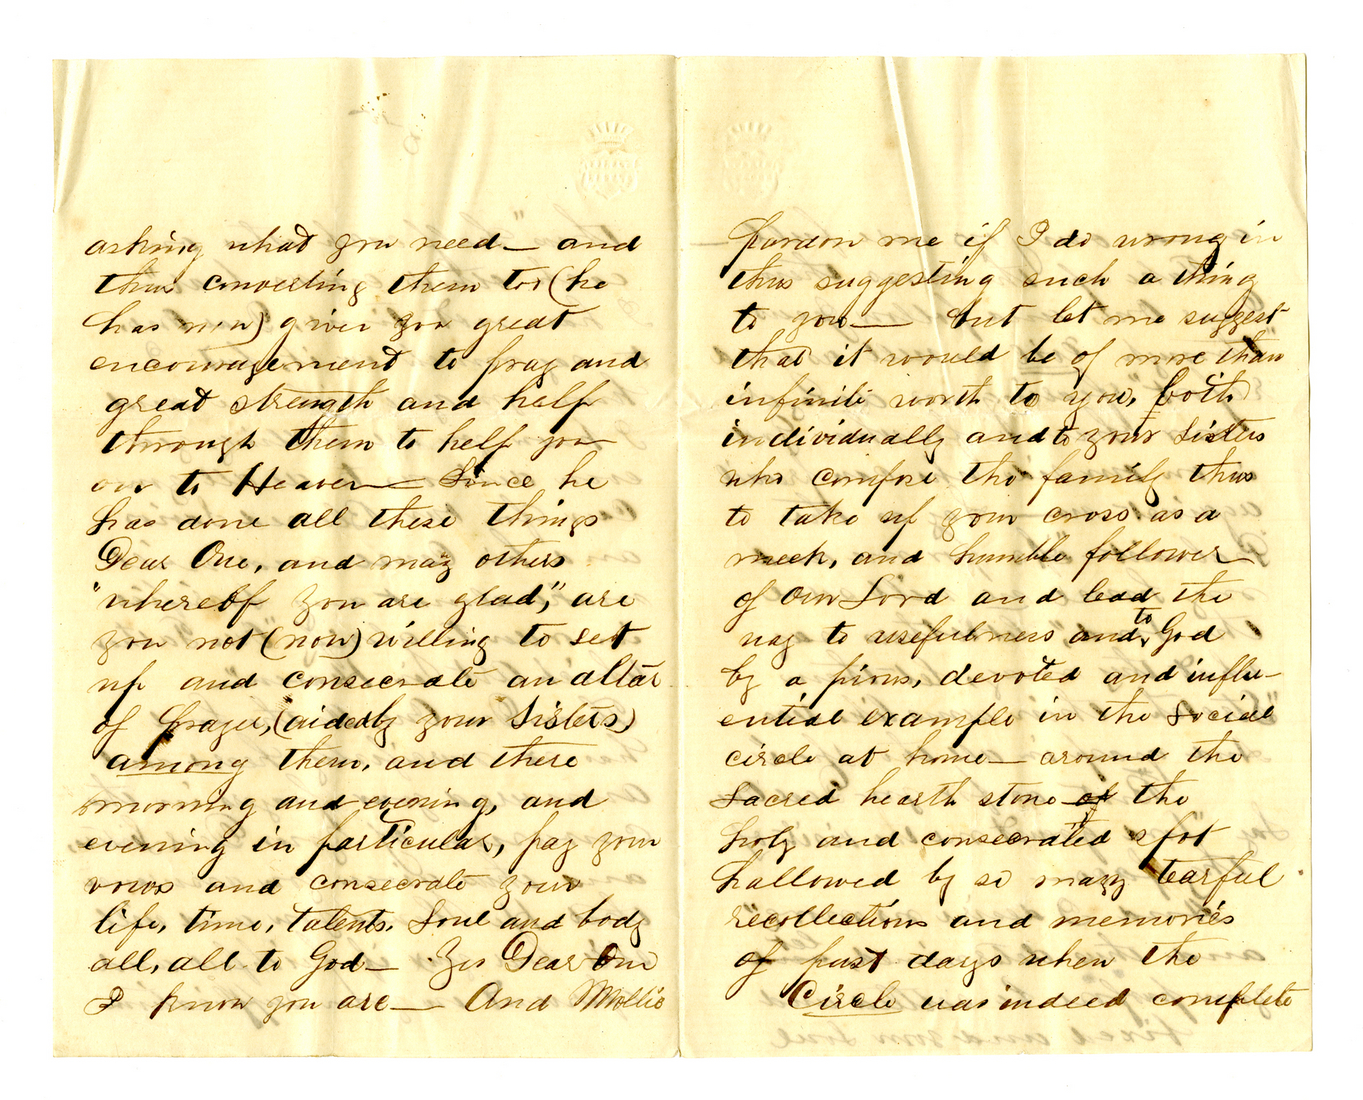 asking what you need — and
thus converting them too (he
has now) given you great
encouragement to pray and
great strength and help
through them to help you
on to Heaven — Since he
has done all these things
Dear One, and may others
"whereof you are glad," are
you not (now) willing to set
up and consecrate an altar
of prayer, (aided by your Sisters)
among them, and there
morning and evening, and
evening in particular, pay your
vows and consecrate your
life, time, talents, Soul and body
all, all to God — Yes Dear One
I know you are — And Mollie
Pardon me if I do wrong in
thus suggesting such a thing
to you — but let me suggest
that it would be of more than
infinite worth to you, both
individually and to your Sisters
who compose the family thus
to take up your cross as a
meek, and humble follower
of Our Lord and lead the
way to usefulness and to God
by a pious, devoted and influ-
ential example in the Social
circle at home — around the
Sacred hearth stone of the
holy and consecrated spot
hallowed by so many tearful
recollections and memories
of past days when the
Circle was indeed complete